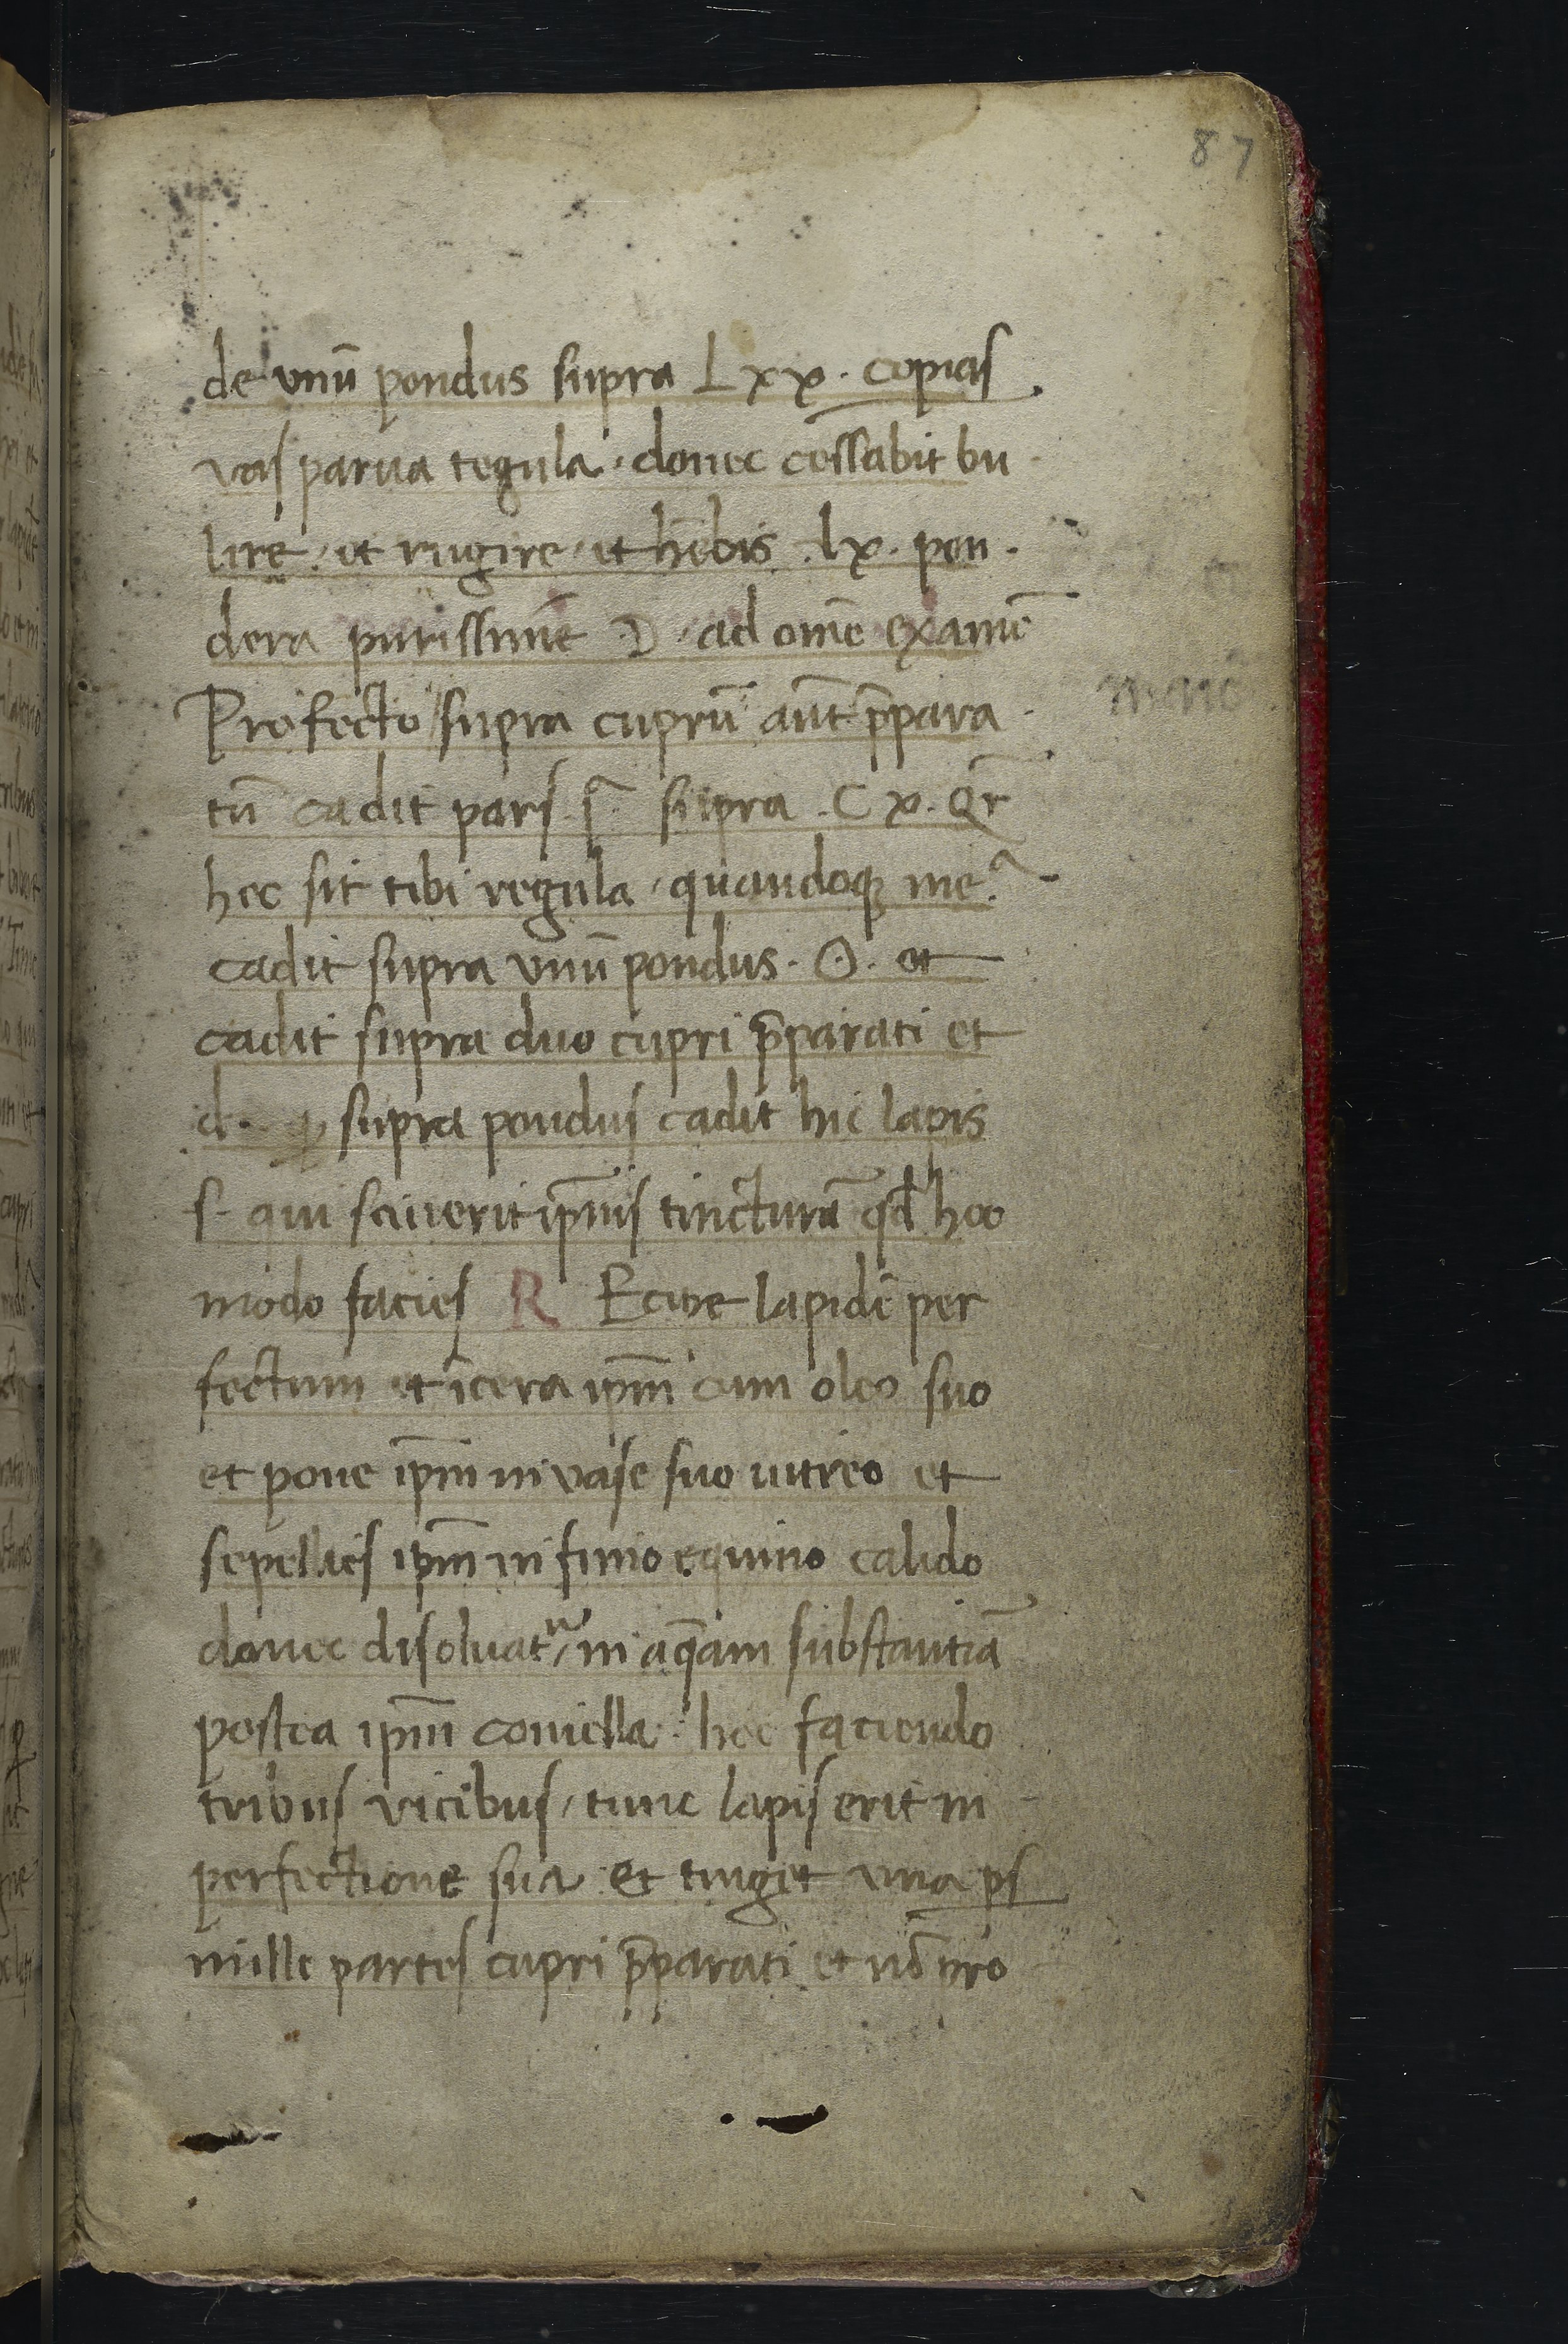 87
de vnū pondus supra Lxx. copias
vas parua tegula. donec cessabit bu
lire. et rugire. et hēbis .lx. pon.
dera purissime ☽. ad omē examē
Profecto supra cuprū aūt p̄para
tū cadit pars supra .Cx. Qr̄
hec sit tibi regula, quandoqȝ meᵃ.
cadit supra vnū pondus. ☉. et
cadit supra duo cupri p̄parati et
supra pondus cadit hic lapis
s. qui sciuerit ip̄ius tincturā qd̄ hoc
modo facies R Ecipe lapidē per
fectum et īcera ip̄m cum oleo suo
et pone ip̄m in vase suo uitreo et
sepellies ip̄m in fimo equino calido
donec disoluatᵘ, in aq̄am substantiā
postea ip̄m congella. hoc faciendo
tribus vicibus, tunc lapis erit in
perfectione sua. et tinget vna ps
mille partes cupri p̄parati et nō pro